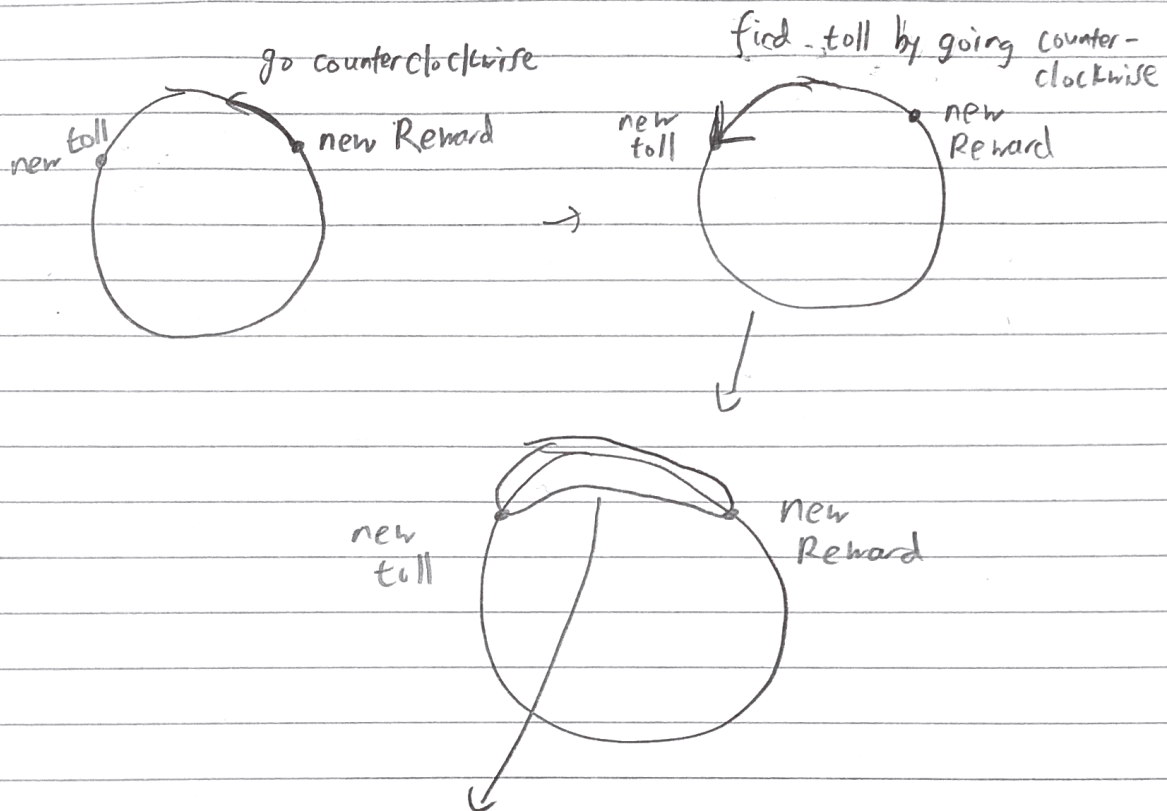 go counterclockwise
new toll
new Reward
find toll by going counter-
clockwise
new
toll
new
Reward
new
toll
new
Reward